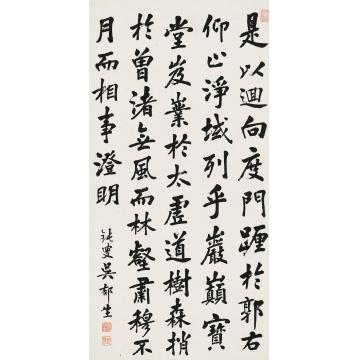 是以迴向度門踵於郭右
仰止淨域列乎巖巔寶
堂岌業於太虛道樹森捎
於曾渚無風而林壑肅穆不
月而相事澄明
吳郁生